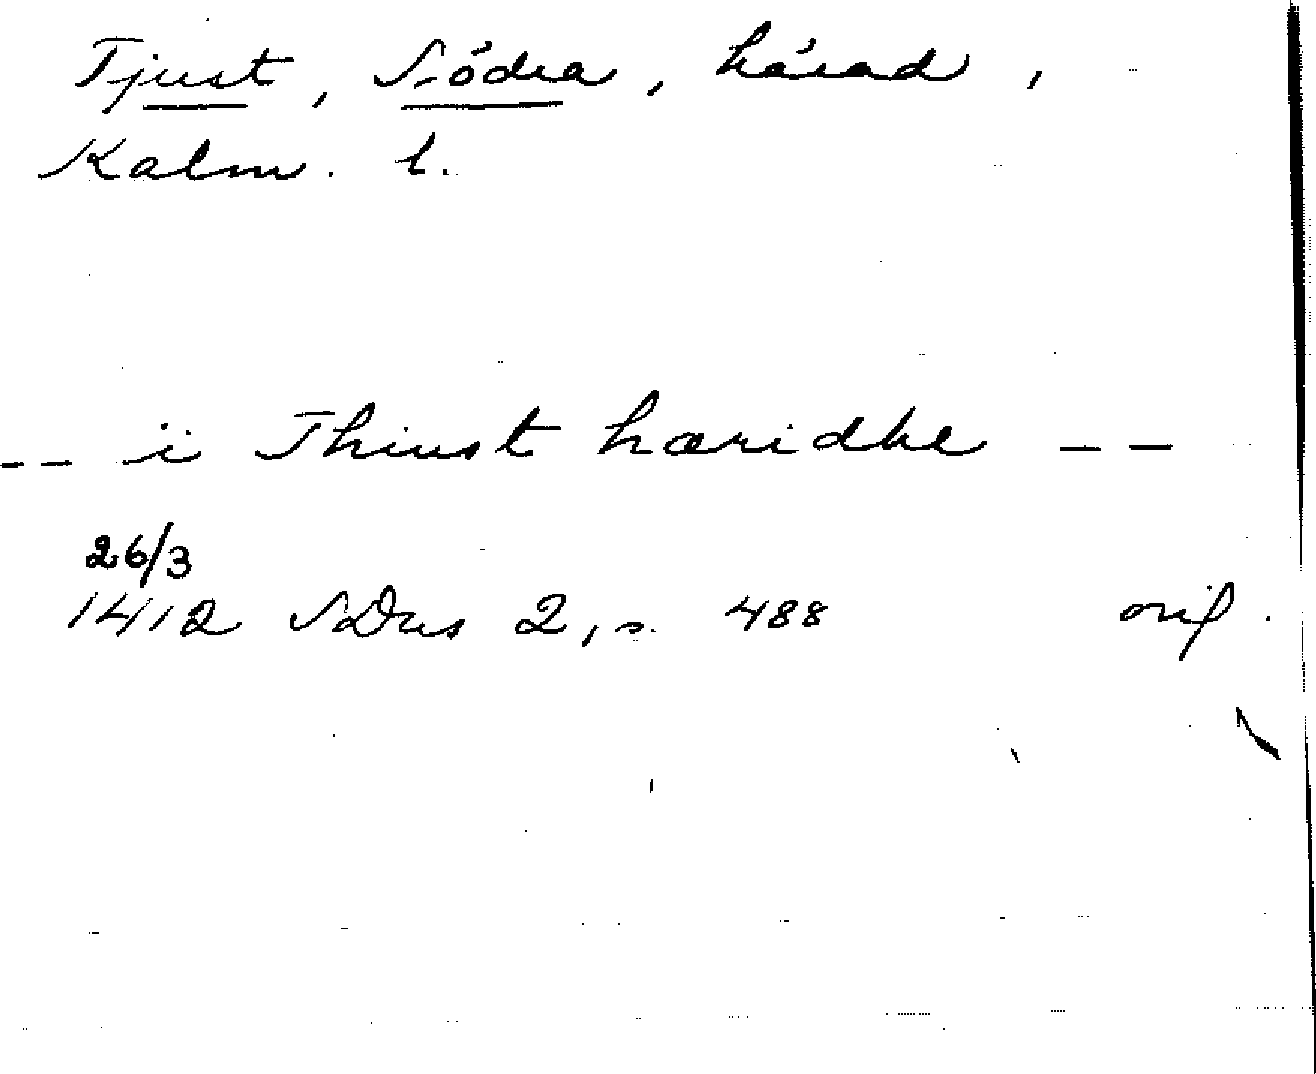 Tjust, Södra, härad,
Kalm. l.
-- i Thiust hæridhe --
26/3
1412 SDns 2, s. 488 orig.